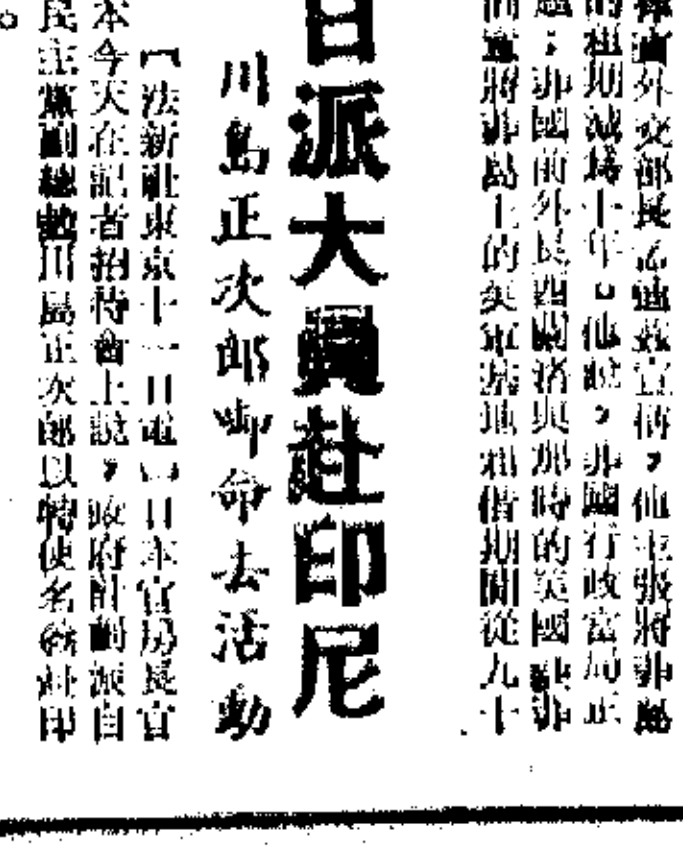 外交部長宣稱,他主張將非島
的租期減爲十年。他說,非國行政當局正
題;非國前外長與那時的美國
將非島上的美軍基地租借期間從九十
日派大員赴印尼
川島正次郎啣命去活動
【法新社東京十一日電】日本官房長官
本今天在記者招待會上說,政府計劃派自
民主黨副總裁川島正次郎以特使名義赴印
。